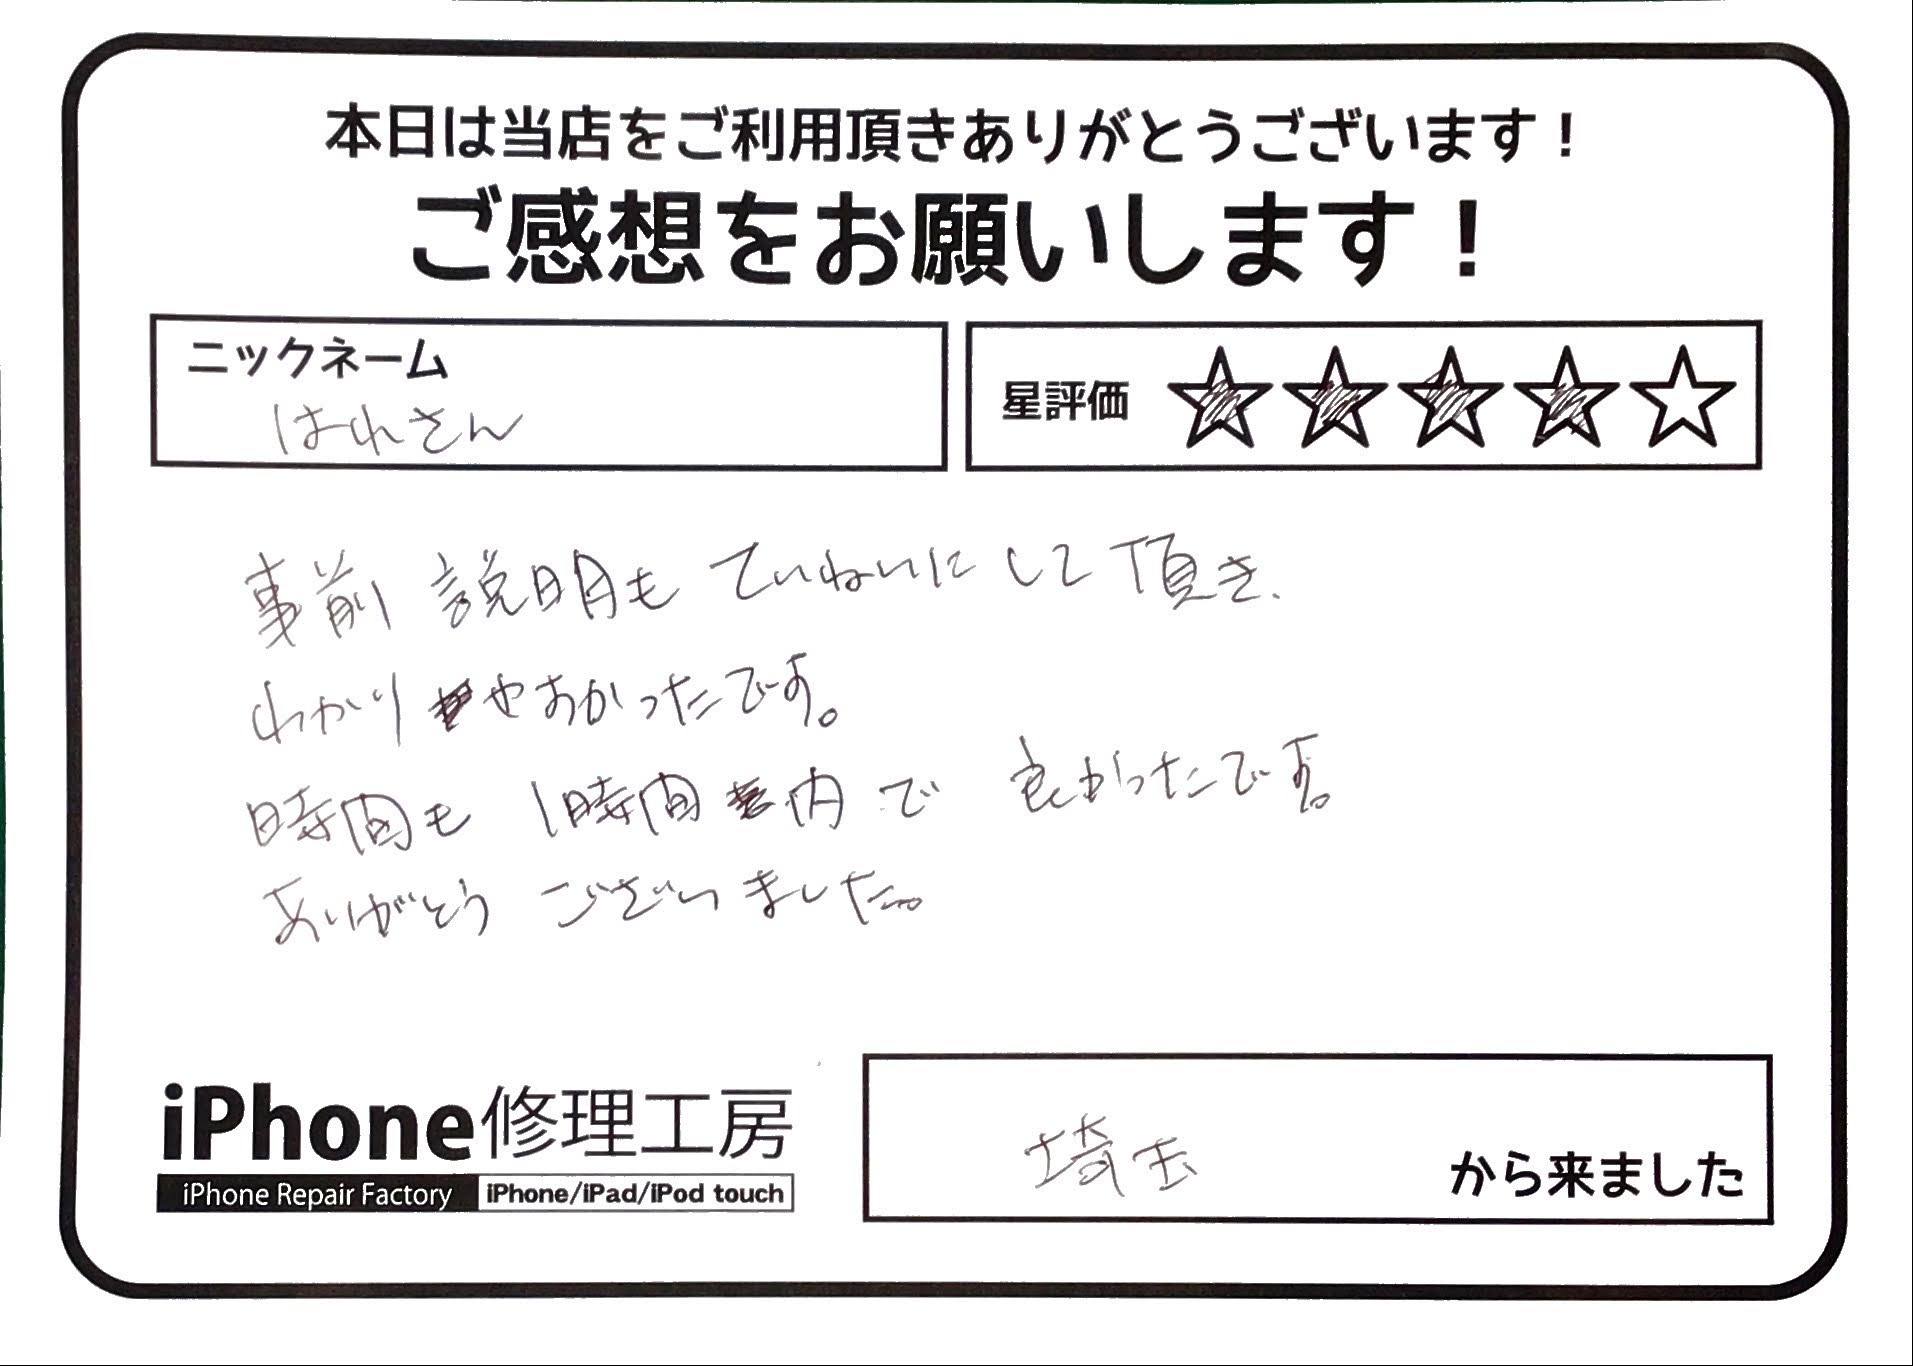 本日は当店をご利用頂きありがとうございます！
ご感想をお願いします！
ニックネーム
はれさん
星評価 ★★★★☆
事前説明もていねいにして頂き、
わかりやすかったです。
時間も1時間内で良かったです。
ありがとうございました。
iPhone修理工房
iPhone Repair Factory iPhone/iPad/iPod touch
埼玉 から来ました